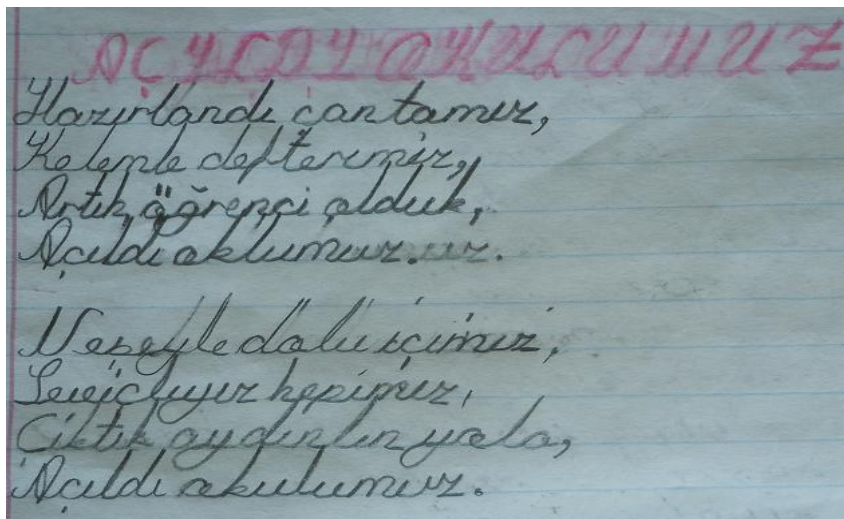 AÇILDI OKULUMUZ
Hazırlandı çantamız,
Kelemle defterimiz,
Artık öğrenci olduk,
Açıldı oklumuz.uz.
Neşeyle dolu içimiz,
Seviçliyiz hepimiz,
Çıktık aydınlın yola,
Açıldı okulumuz.